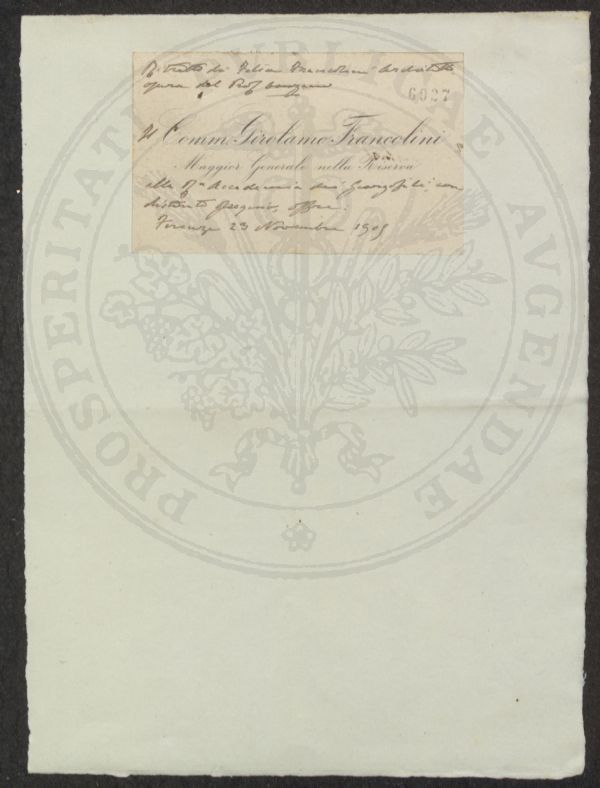 Ritratto di Felice Francolini Architetto
opera del Prof
6027
Il Comm. Girolamo Francolini
Maggior Generale nella Riserva
alla Rª Accademia dei Georgofili, con
distinto ossequio, offre.
Firenze 23 Novembre 1905
PROSPERITATI PUBLICAE AVGENDAE